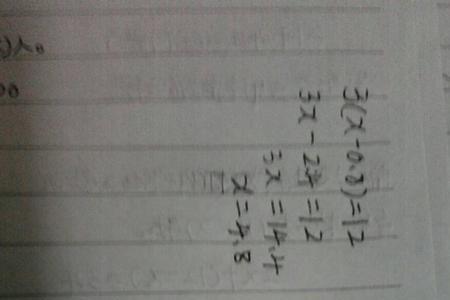 3(x-0.8)=12
3x-2.4=12
3x=14.4
x=4.8